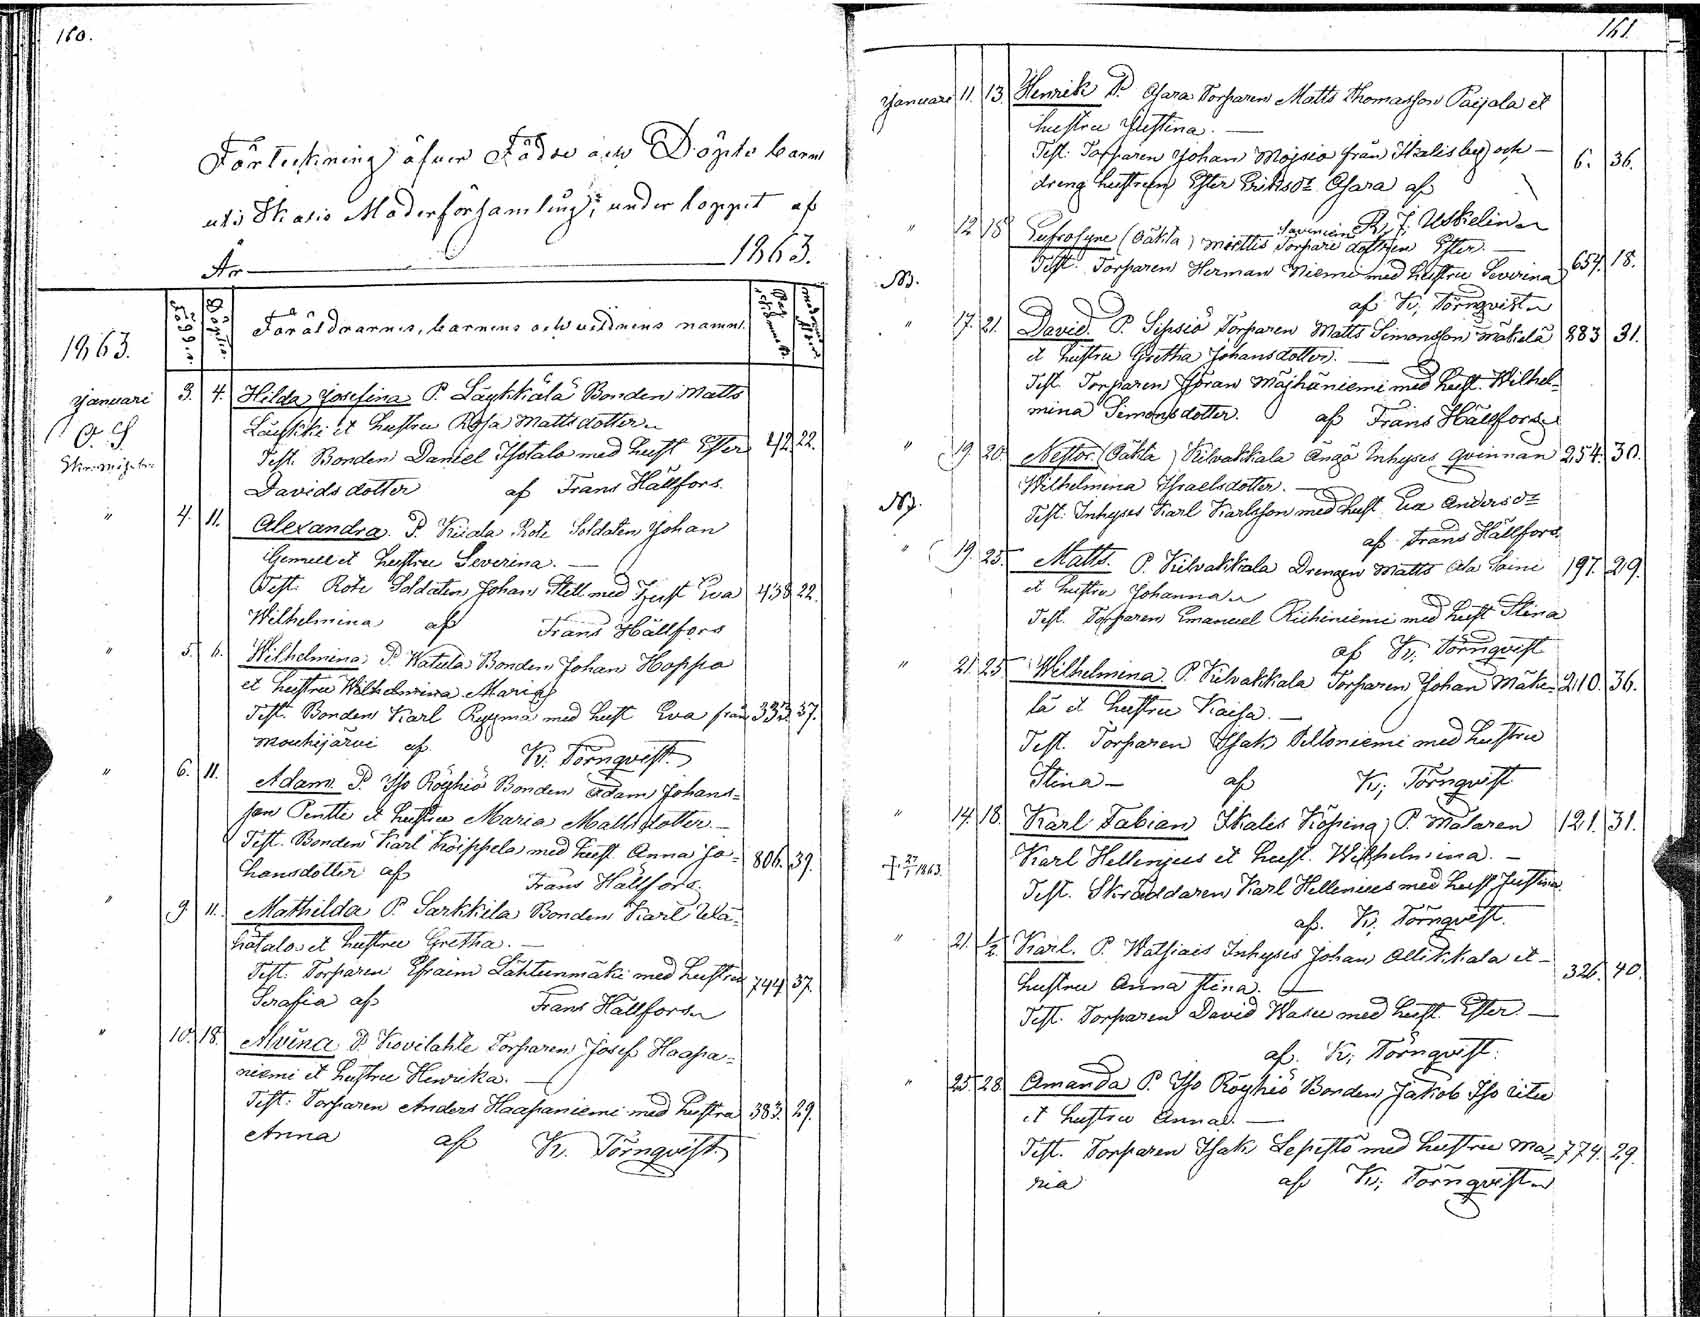 160.
Förteckning öfver Födde och Döpte barn
uti Ikalis Moderförsamling, under loppet af
År 1863.
1863.
Född
Döpte
Föräldrarnes, barnens och vittnens namn.
Januari 3. 4. Hilda Josefina P. Läykkälä Bonden Matts
et hustru Rosa Mattsdotter
Test. Bonden Daniel Isotalo med hust Ester 412. 22.
Davidsdotter af Frans Hällfors.
" 4. 11. Alexandra. P. Kiiala Rote Soldaten Johan
et hustru Severina. —
Test. Rote Soldaten Johan Stell med Hust Eva 438 22.
Wilhelmina af Frans Hällfors
" 5. 6. Wilhelmina P. Watula Bonden Johan Hoppa
et hustru Wilhelmina Maria
Test. Bonden Karl Ryymä med hust Eva från 333. 37.
Mouhijärvi af K; Törnqvist.
" 6. 11. Adam. P. Iso Röyhiö Bonden Adam Johans=
son Pentti et hustru Maria Mattsdotter. —
Test. Bonden Karl Koippela med hust. Anna Jo= 806. 39.
hansdotter af Frans Hällfors.
" 9. 11. Mathilda P. Sarkkila Bonden Karl Wä=
hätalo et hustru Gretha. —
Test. Torparen Efraim Lähtenmäki med hustru 744 37.
Serafia af Frans Hällfors
" 10. 18. Alvina P. Kovilahti Torparen Josef Haapa=
niemi et hustru Henrika. —
Test: Torparen Anders Haapaniemi med hustru 383. 29.
Anna af K. Törnqvist.
161.
Januari 11. 13. Henrik P. Osara Torparen Matts Thomasson Paijala et
hustru Justina. —
Test: Torparen Johan Mojsio från Ikalis by och — 6. 36.
dreng hustrun Ester Osara af
" 12 18 Eufrosyne (Oäkta) Torpare dottren Ester. —
Test. Torparen Herman Niemi med hustru Severina 654. 18.
N3. af K; Törnqvist
" 17. 21. David. P. Sipsiö Torparen Matts Simonsson Mäkelä 883 31.
et hustru Gretha Johansdotter. —
Test. Torparen Göran Mäjhäniemi med hust. Wilhel=
mina Simonsdotter. af Frans Hällfors
" 19. 20. Nestor. (Oäkta) Kilvakkala Inhyses qvinnan 254. 30.
Wilhelmina Israelsdotter. —
Test. Inhyses Karl Karlsson med hust. Eva
af Frans Hällfors.
" 19. 25. Matts. P. Kilvakkala Drengen Matts Ala Saini 197. 29.
et hustru Johanna
Test. Torparen Emanuel Riihiniemi med hust Stina
af K; Törnqvist
" 21. 25 Wilhelmina. P. Kilvakkala Torparen Johan Mäke= 210. 36.
lä et hustru Kaisa. —
Test. Torparen Isak Peltoniemi med hustru
Stina — af K; Törnqvist
" 14. 18. Karl Fabian Ikalis Köping P. Målaren 121. 31.
† 27/1 1863. Karl Hellenius et hust. Wilhelmina. —
Test. Skräddaren Karl Hellenius med hust Justina
af. K; Törnqvist.
" 21. 1/2. Karl. P. Watsiais Inhyses Johan Ollikkala et —
hustru Anna Stina. — 326. 40.
Test. Torparen David Wasu med hust. Ester —
af. K; Törnqvist.
" 25. 28. Amanda P. Iso Röyhiö Bonden Jakob Iso
et hustru Anna. —
Test. Torparen Isak Lepistö med hustru Ma= 774. 29.
ria af K; Törnqvist